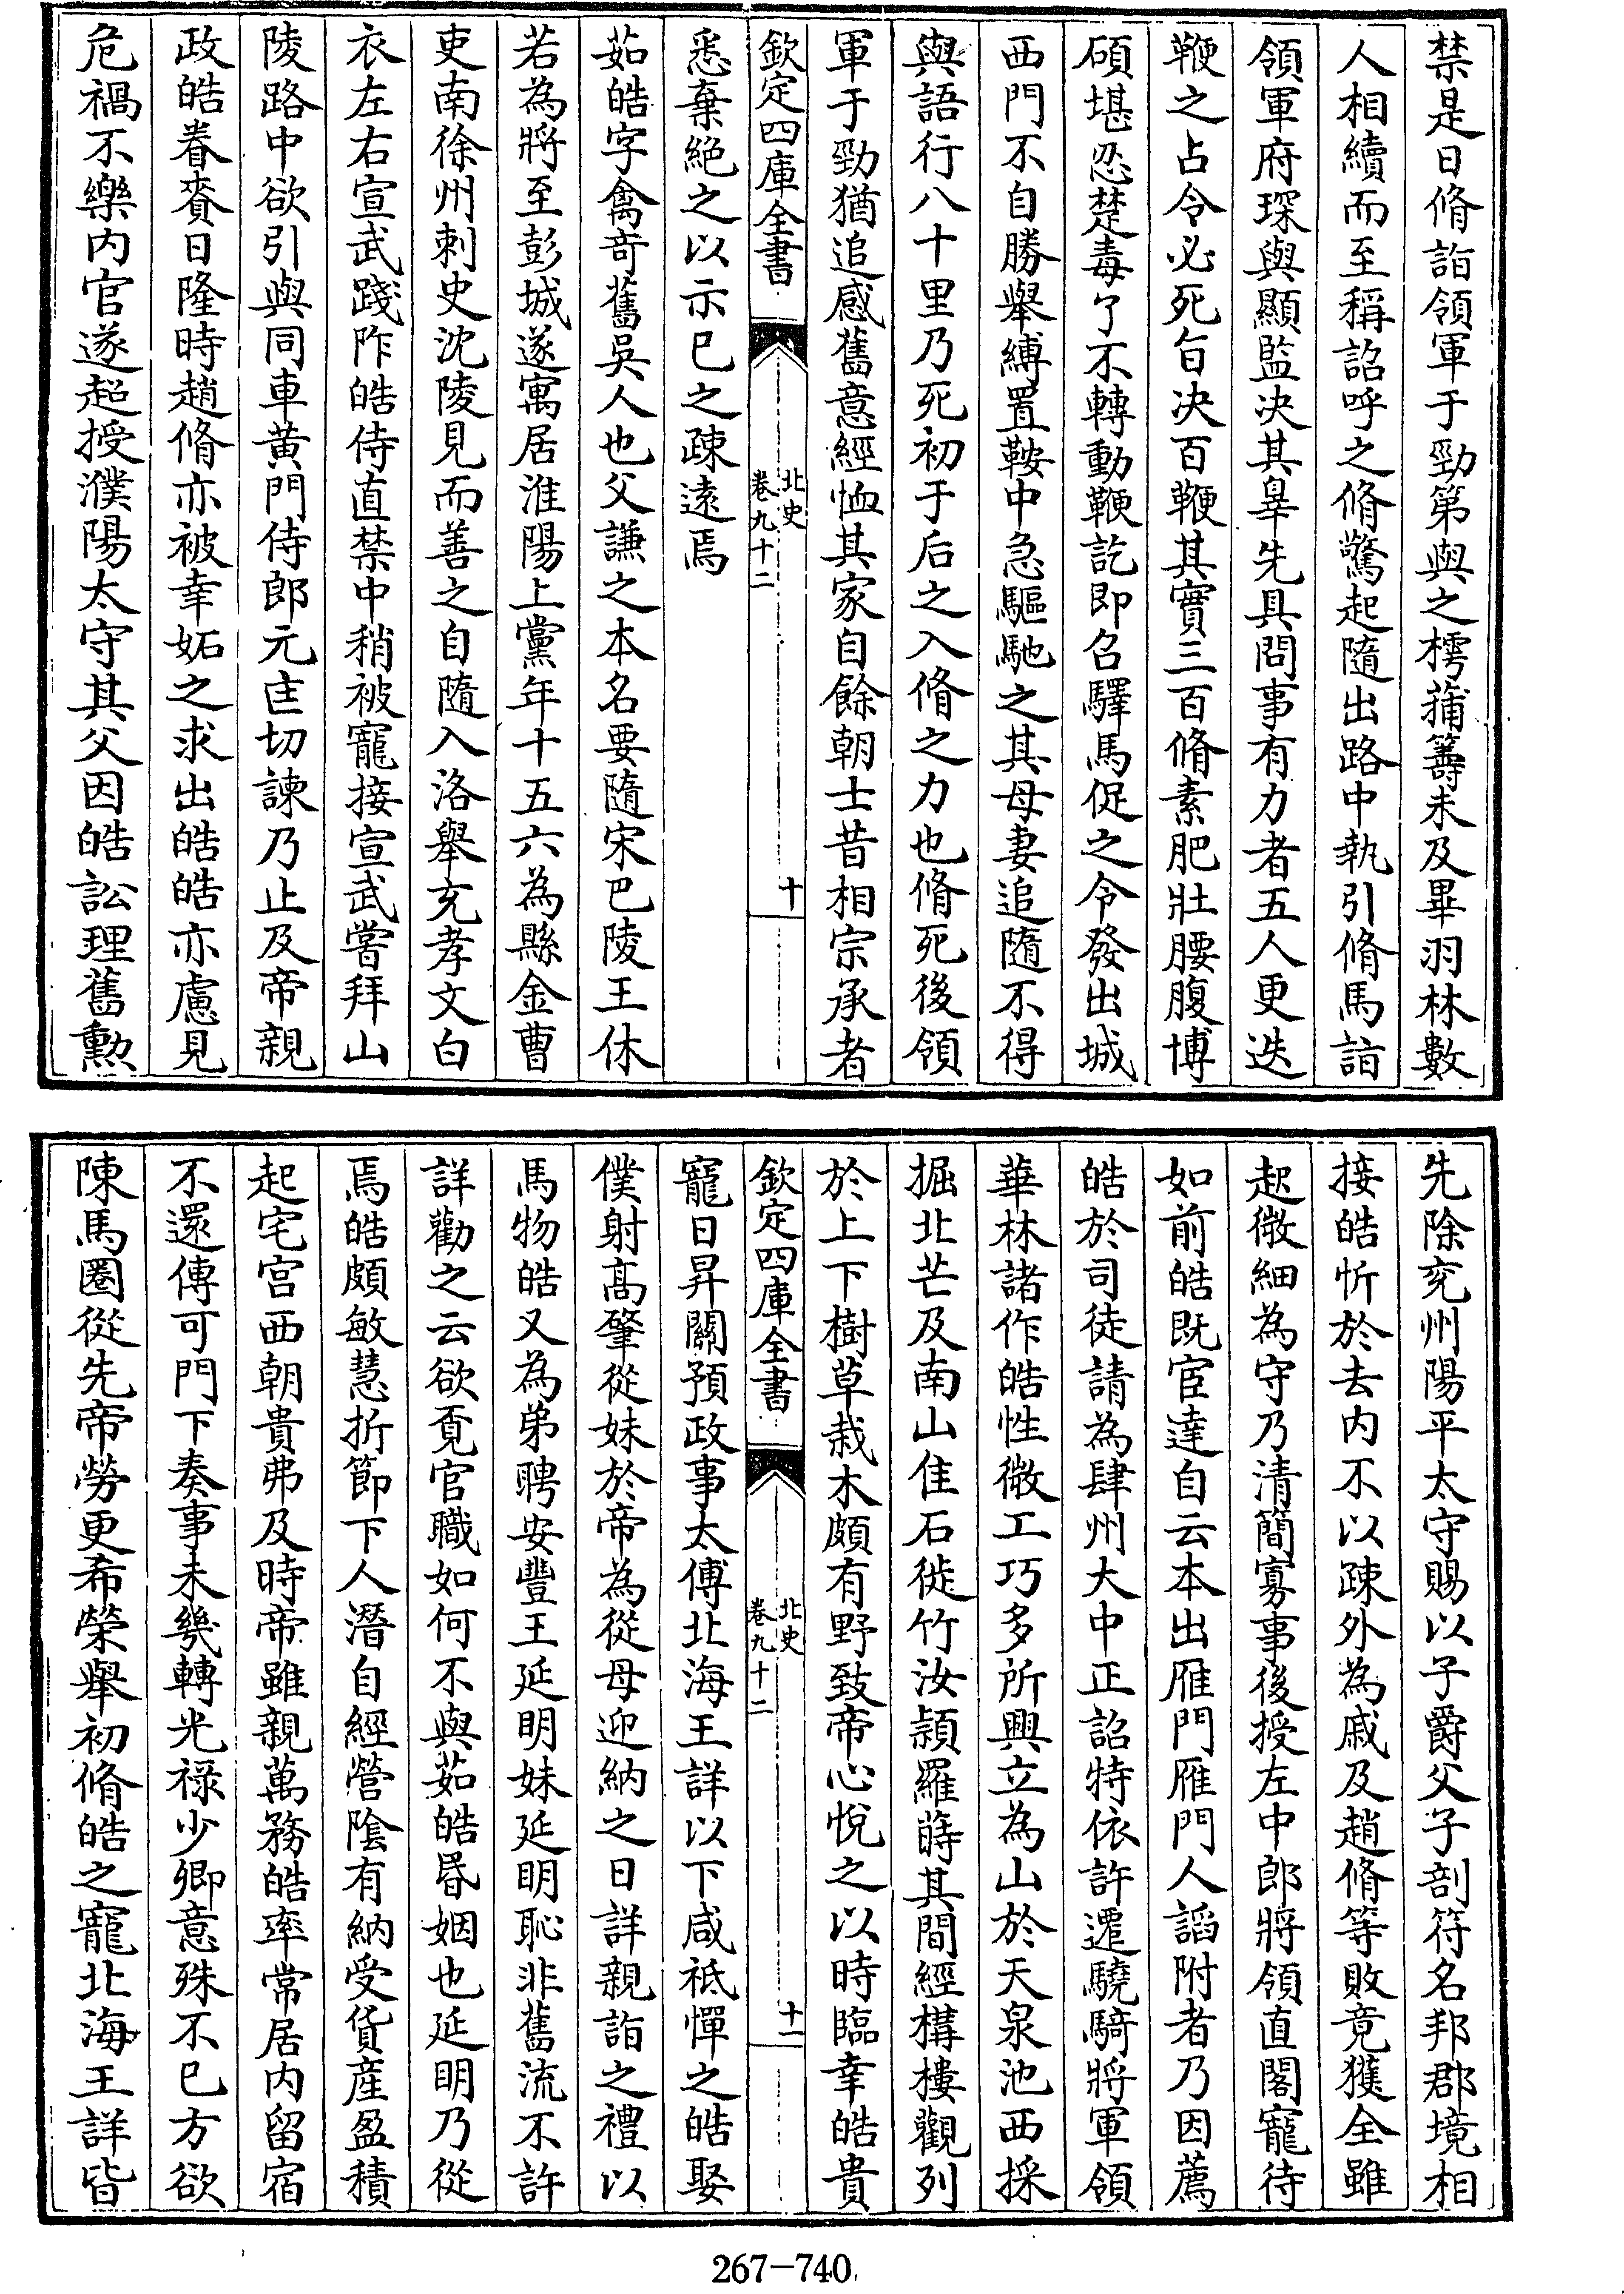 禁是日脩詣領軍于勁第與之樗蒲籌未及畢羽林數
人相續而至稱詔呼之脩驚起隨出路中執引脩馬詣
領軍府琛與顯監决其辠先具問事有力者五人更迭
鞭之占令必死㫖决百鞭其實三百脩素肥壯腰腹博
碩堪忍楚毒了不轉動鞭訖即召驛馬促之令發出城
西門不自勝舉縛置鞍中急驅馳之其母妻追隨不得
與語行八十里乃死初于后之入脩之力也脩死後領
軍于勁猶追感舊意經恤其家自餘朝士昔相宗承者
欽定四庫全書
北史
卷九十二
十
悉棄絶之以示已之疎遠焉
茹皓字禽竒舊吳人也父謙之本名要隨宋巴陵王休
若為將至彭城遂寓居淮陽上黨年十五六為縣金曹
吏南徐州刺史沈陵見而善之自隨入洛舉充孝文白
衣左右宣武踐阼皓侍直禁中稍被寵接宣武嘗拜山
陵路中欲引與同車黄門侍郎元匡切諫乃止及帝親
政皓眷賚日隆時趙脩亦被幸妬之求出皓皓亦慮見
危禍不樂内官遂超授濮陽太守其父因皓訟理舊勲
先除兖州陽平太守賜以子爵父子剖符名邦郡境相
接皓忻於去内不以疎外為戚及趙脩等敗竟獲全雖
起微細為守乃清簡寡事後授左中郎將領直閣寵待
如前皓既宦達自云本出雁門雁門人諂附者乃因薦
皓於司徒請為肆州大中正詔特依許遷驍騎將軍領
華林諸作皓性微工巧多所興立為山於天泉池西採
掘北芒及南山佳石徙竹汝潁羅蒔其間經構樓觀列
於上下樹草栽木頗有野致帝心悅之以時臨幸皓貴
欽定四庫全書
北史
卷九十二
十一
寵日昇關預政事太傅北海王詳以下咸祗憚之皓娶
僕射髙肇從妹於帝為從母迎納之日詳親詣之禮以
馬物皓又為弟聘安豐王延明妹延明恥非舊流不許
詳勸之云欲覔官職如何不與茹皓昏姻也延明乃從
焉皓頗敏慧折節下人潛自經營隂有納受貨産盈積
起宅宫西朝貴弗及時帝雖親萬務皓率常居内留宿
不還傳可門下奏事未幾轉光祿少卿意殊不已方欲
陳馬圈從先帝勞更希榮舉初脩皓之寵北海王詳皆
267-740